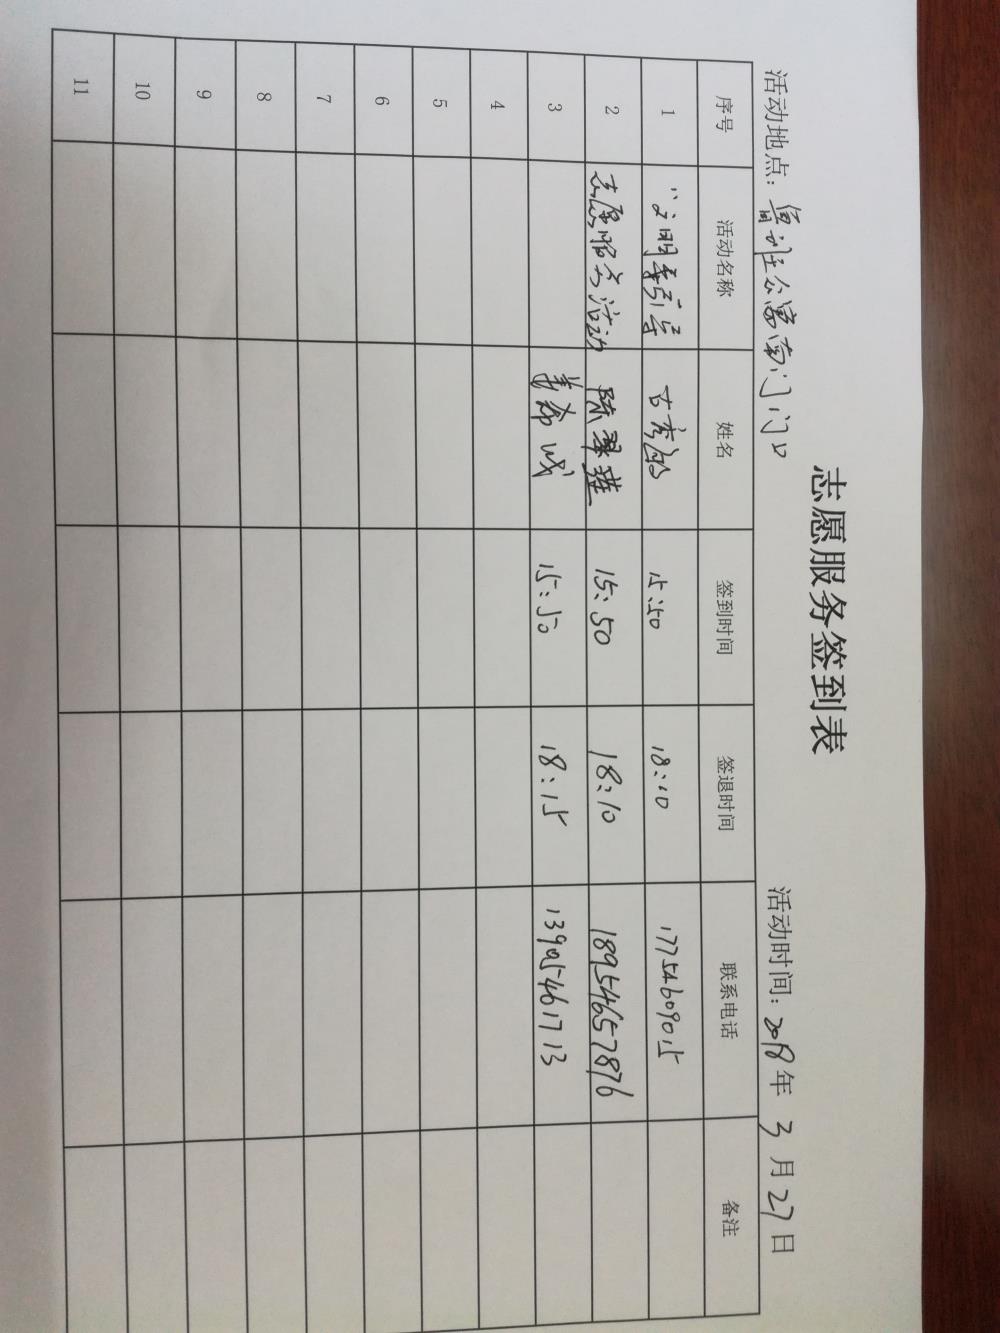 志愿服务签到表
活动地点：鲁班公寓南门门口 活动时间：2018年3月27日
序号 活动名称 姓名 签到时间 签退时间 联系电话 备注
1 "文明季引导 15:50 18:10 17754609015
2 志愿服务活动 陈翠 15:50 18:10 18954657876
3 15:50 18:15 13905461713
4
5
6
7
8
9
10
11